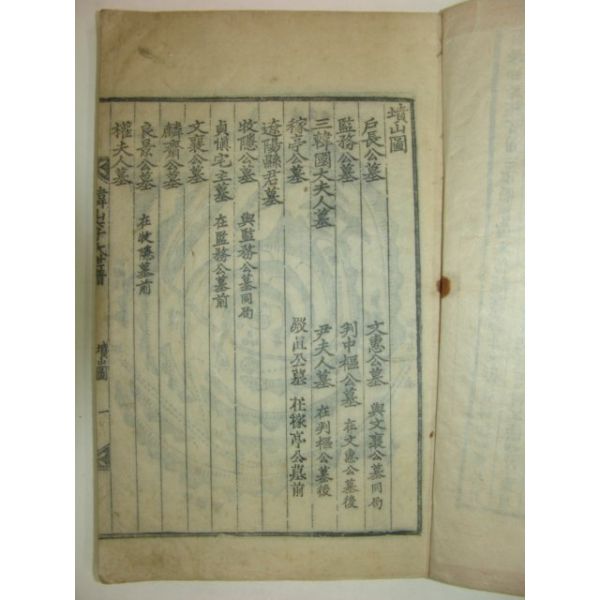 墳山圖
戶長公墓
文惠公墓 與文襄公墓同局
監務公墓
判中樞公墓 在文惠公墓後
三韓國大夫人墓
尹夫人墓 在判樞公墓後
稼亭公墓
直公墓 在稼亭公墓前
遼陽縣君墓
牧隱公墓 與監務公墓同局
貞愼宅主墓 在監務公墓前
文襄公墓
麟齋公墓
良景公墓 在牧隱墓前
權夫人墓
韓山李氏世譜 墳山圖 一